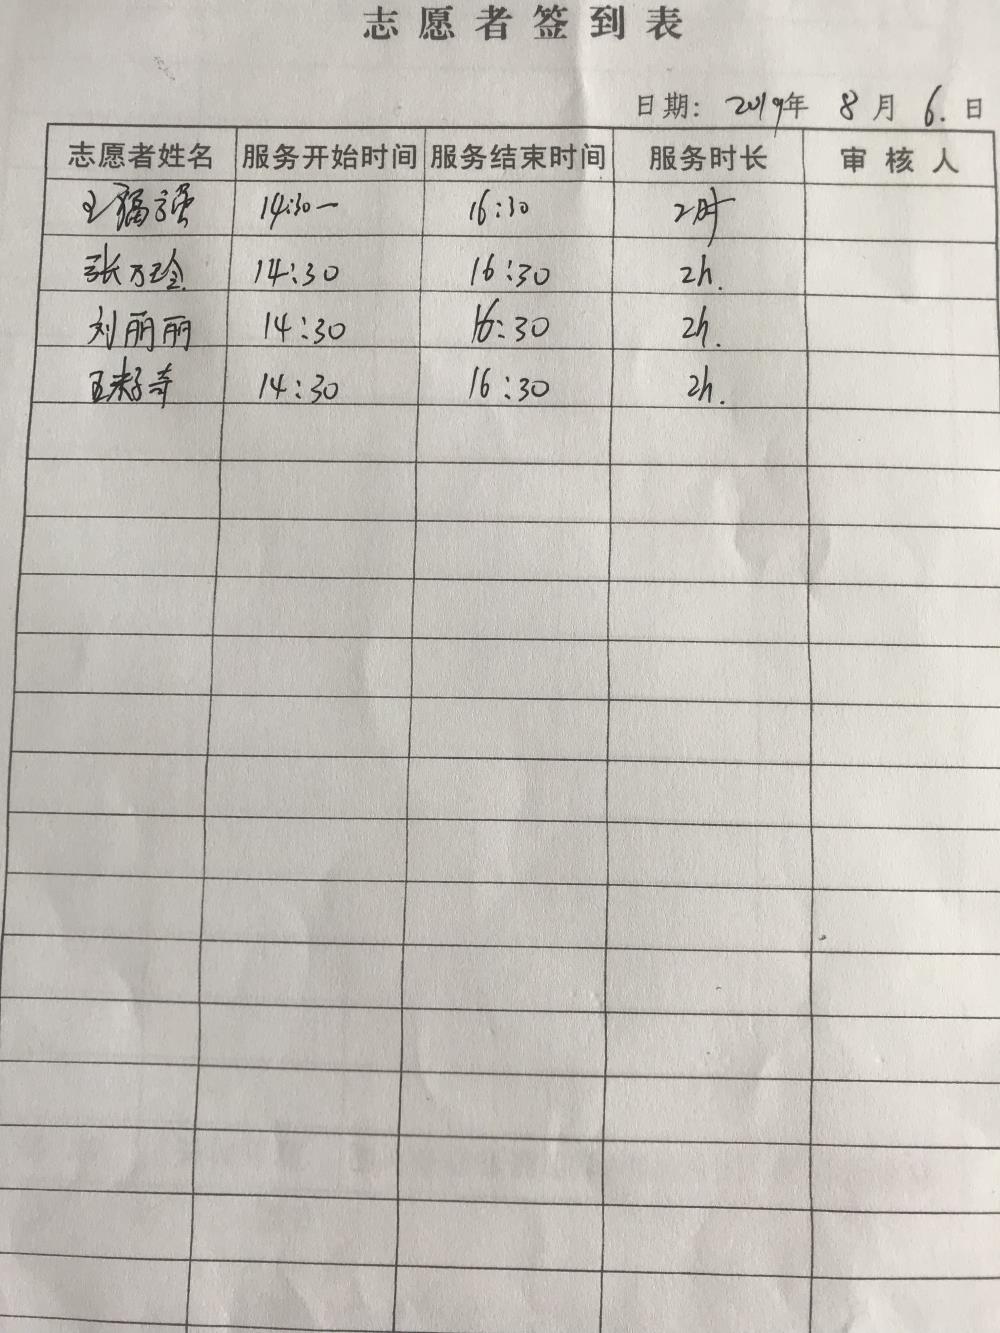 志愿者签到表
日期: 2019年 8月 6.日
志愿者姓名 服务开始时间 服务结束时间 服务时长 审核人
14:30一 16:30 2时
张万玲 14:30 16:30 2h.
刘丽丽 14:30 16:30 2h.
14:30 16:30 2h.